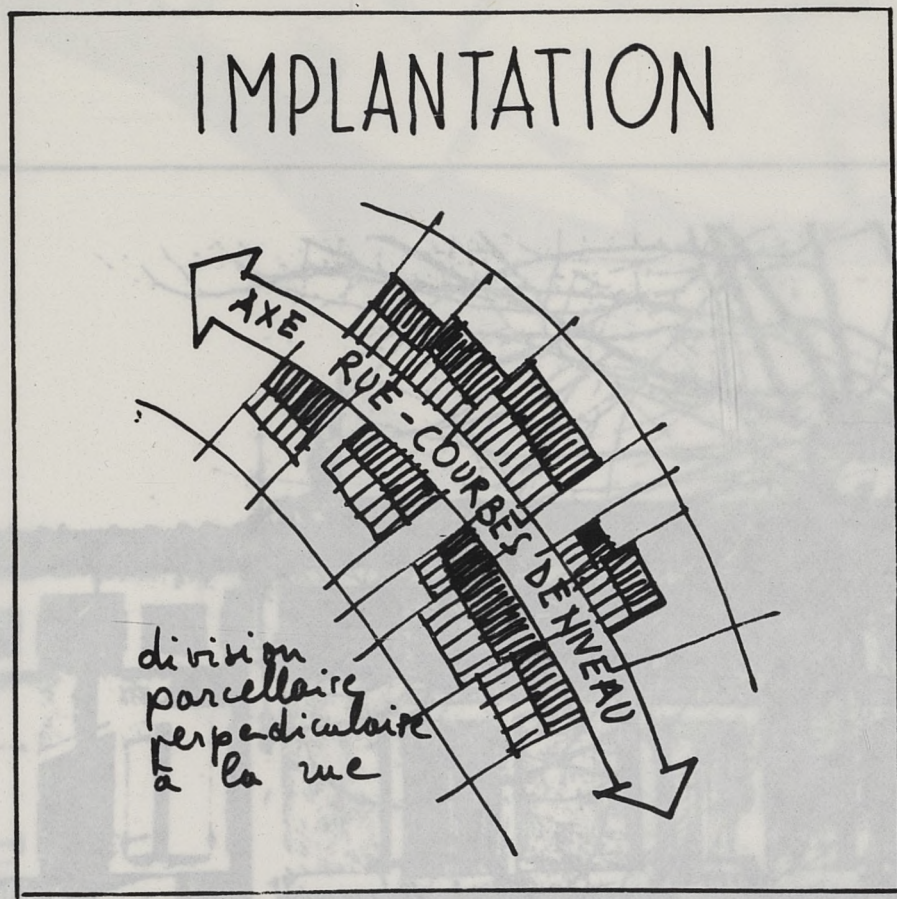 IMPLANTATION
AXE RUE-COURBES DE NIVEAU
division
parcellaire
perpendiculaire
à la rue